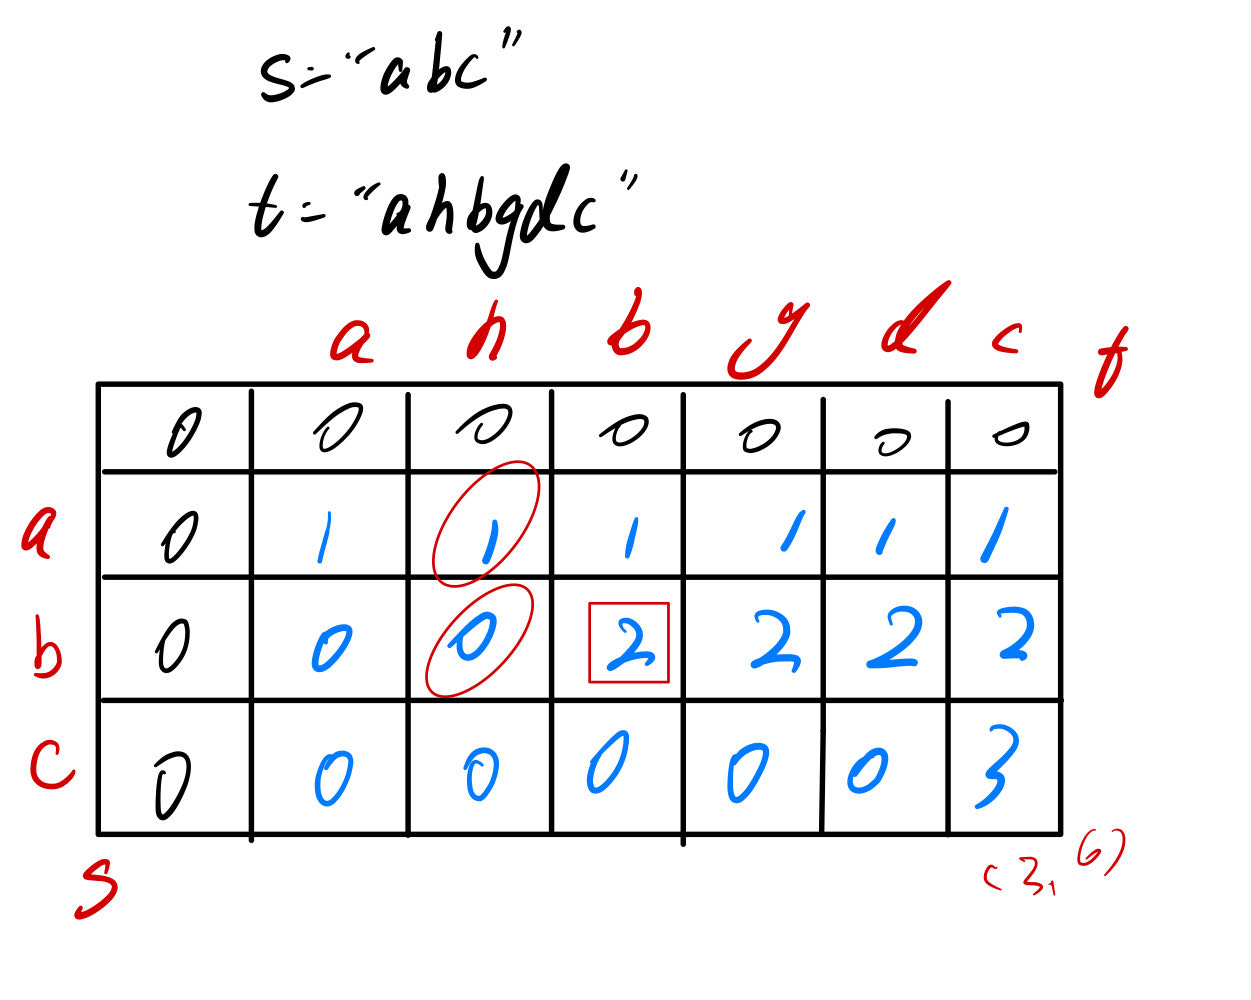 s="abc"
t="ahbgdc"
a h b g d c t
0 0 0 0 0 0 0
a 0 1 1 1 1 1 1
b 0 0 0 2 2 2 2
c 0 0 0 0 0 0 3
s (3,6)